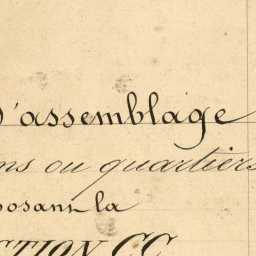 d'assemblage
ns ou quartiers
posant la
CTION CC